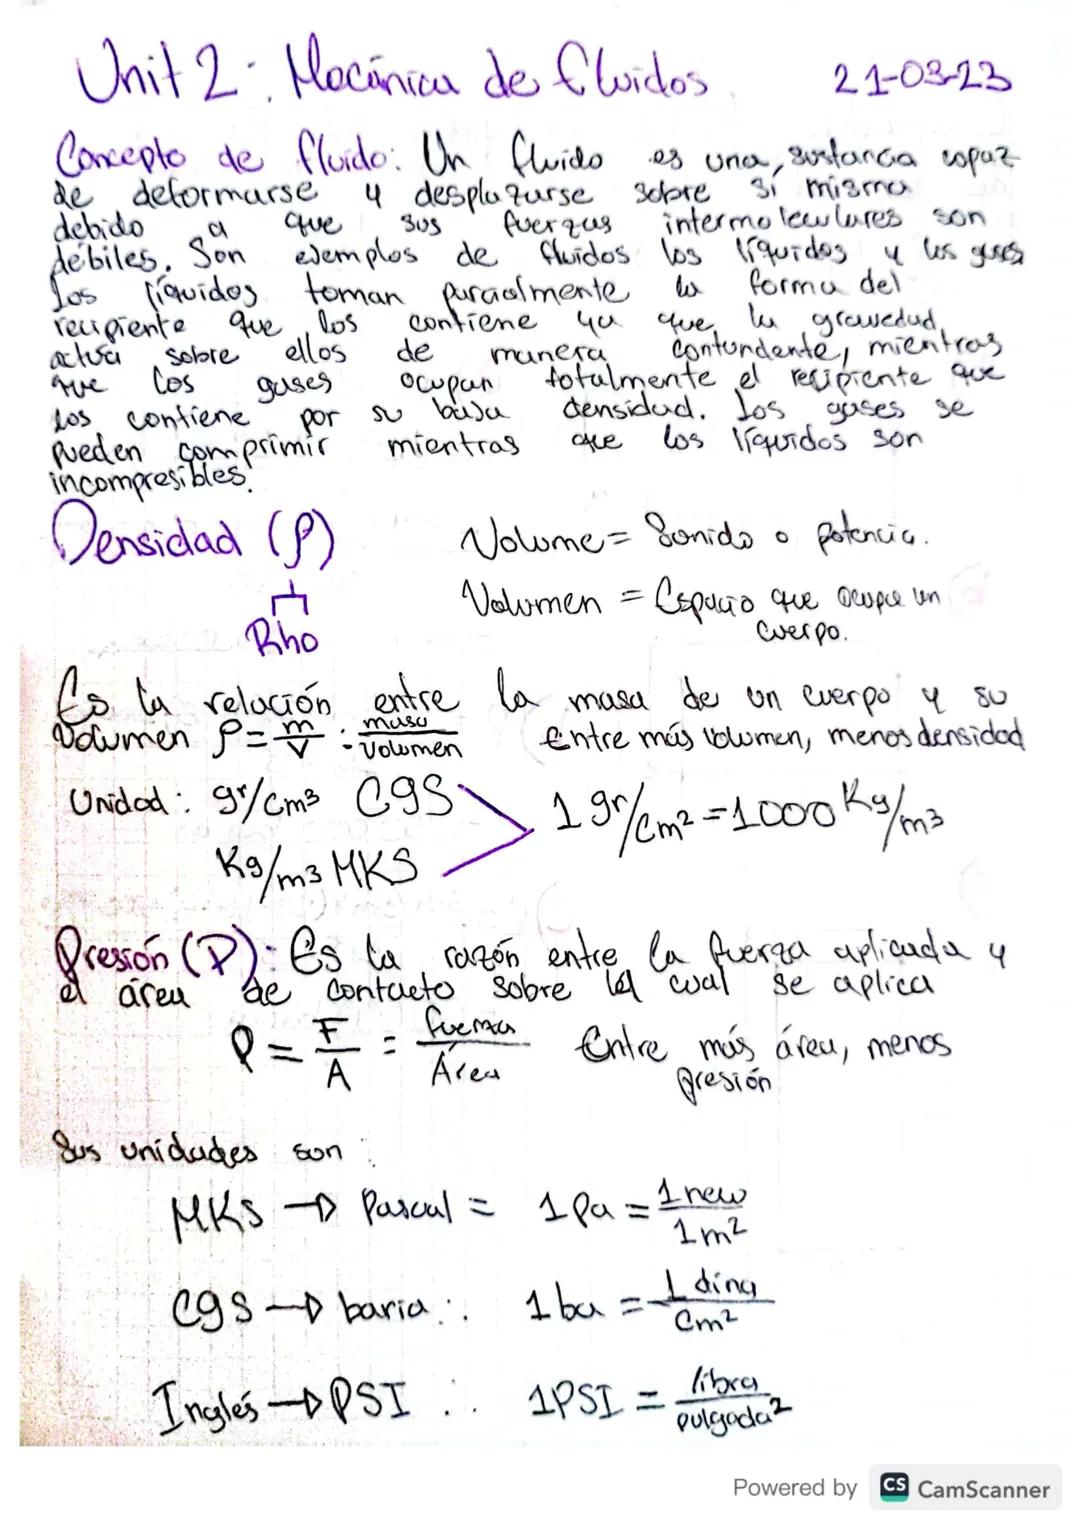 Unit 2: Mecánica de fluidos 21-03-23
Concepto de fluido: Un fluido es una sustancia capaz
de deformarse y desplazarse sobre sí misma
debido a que sus fuerzas intermoleculares son
débiles. Son ejemplos de fluidos los líquidos y los gases
Los líquidos toman parcialmente la forma del
recipiente que los contiene ya que la gravedad
actúa sobre ellos de manera contundente, mientras
que los gases ocupan totalmente el recipiente que
los contiene por su baja densidad. Los gases se
pueden comprimir mientras que los líquidos son
incompresibles.
Densidad (ρ)
Rho
Volume = Sonido o potencia.
Volumen = Espacio que ocupe un
cuerpo.
Es la relación entre la masa de un cuerpo y su
volumen ρ = m/v : masa/volumen Entre más volumen, menos densidad
Unidad: gr/cm³ CGS 1 gr/cm² = 1000 Kg/m³
Kg/m³ MKS
Presión (P): Es la razón entre la fuerza aplicada y
el área de contacto sobre la cual se aplica
P = F/A = fuerza/Área Entre más área, menos
presión
Sus unidades son:
MKS → Pascal = 1 Pa = 1 new/1 m²
CGS → baria ∴ 1 ba = 1 dina/cm²
Inglés → PSI ∴ 1PSI = libra/pulgada²
Powered by CS CamScanner